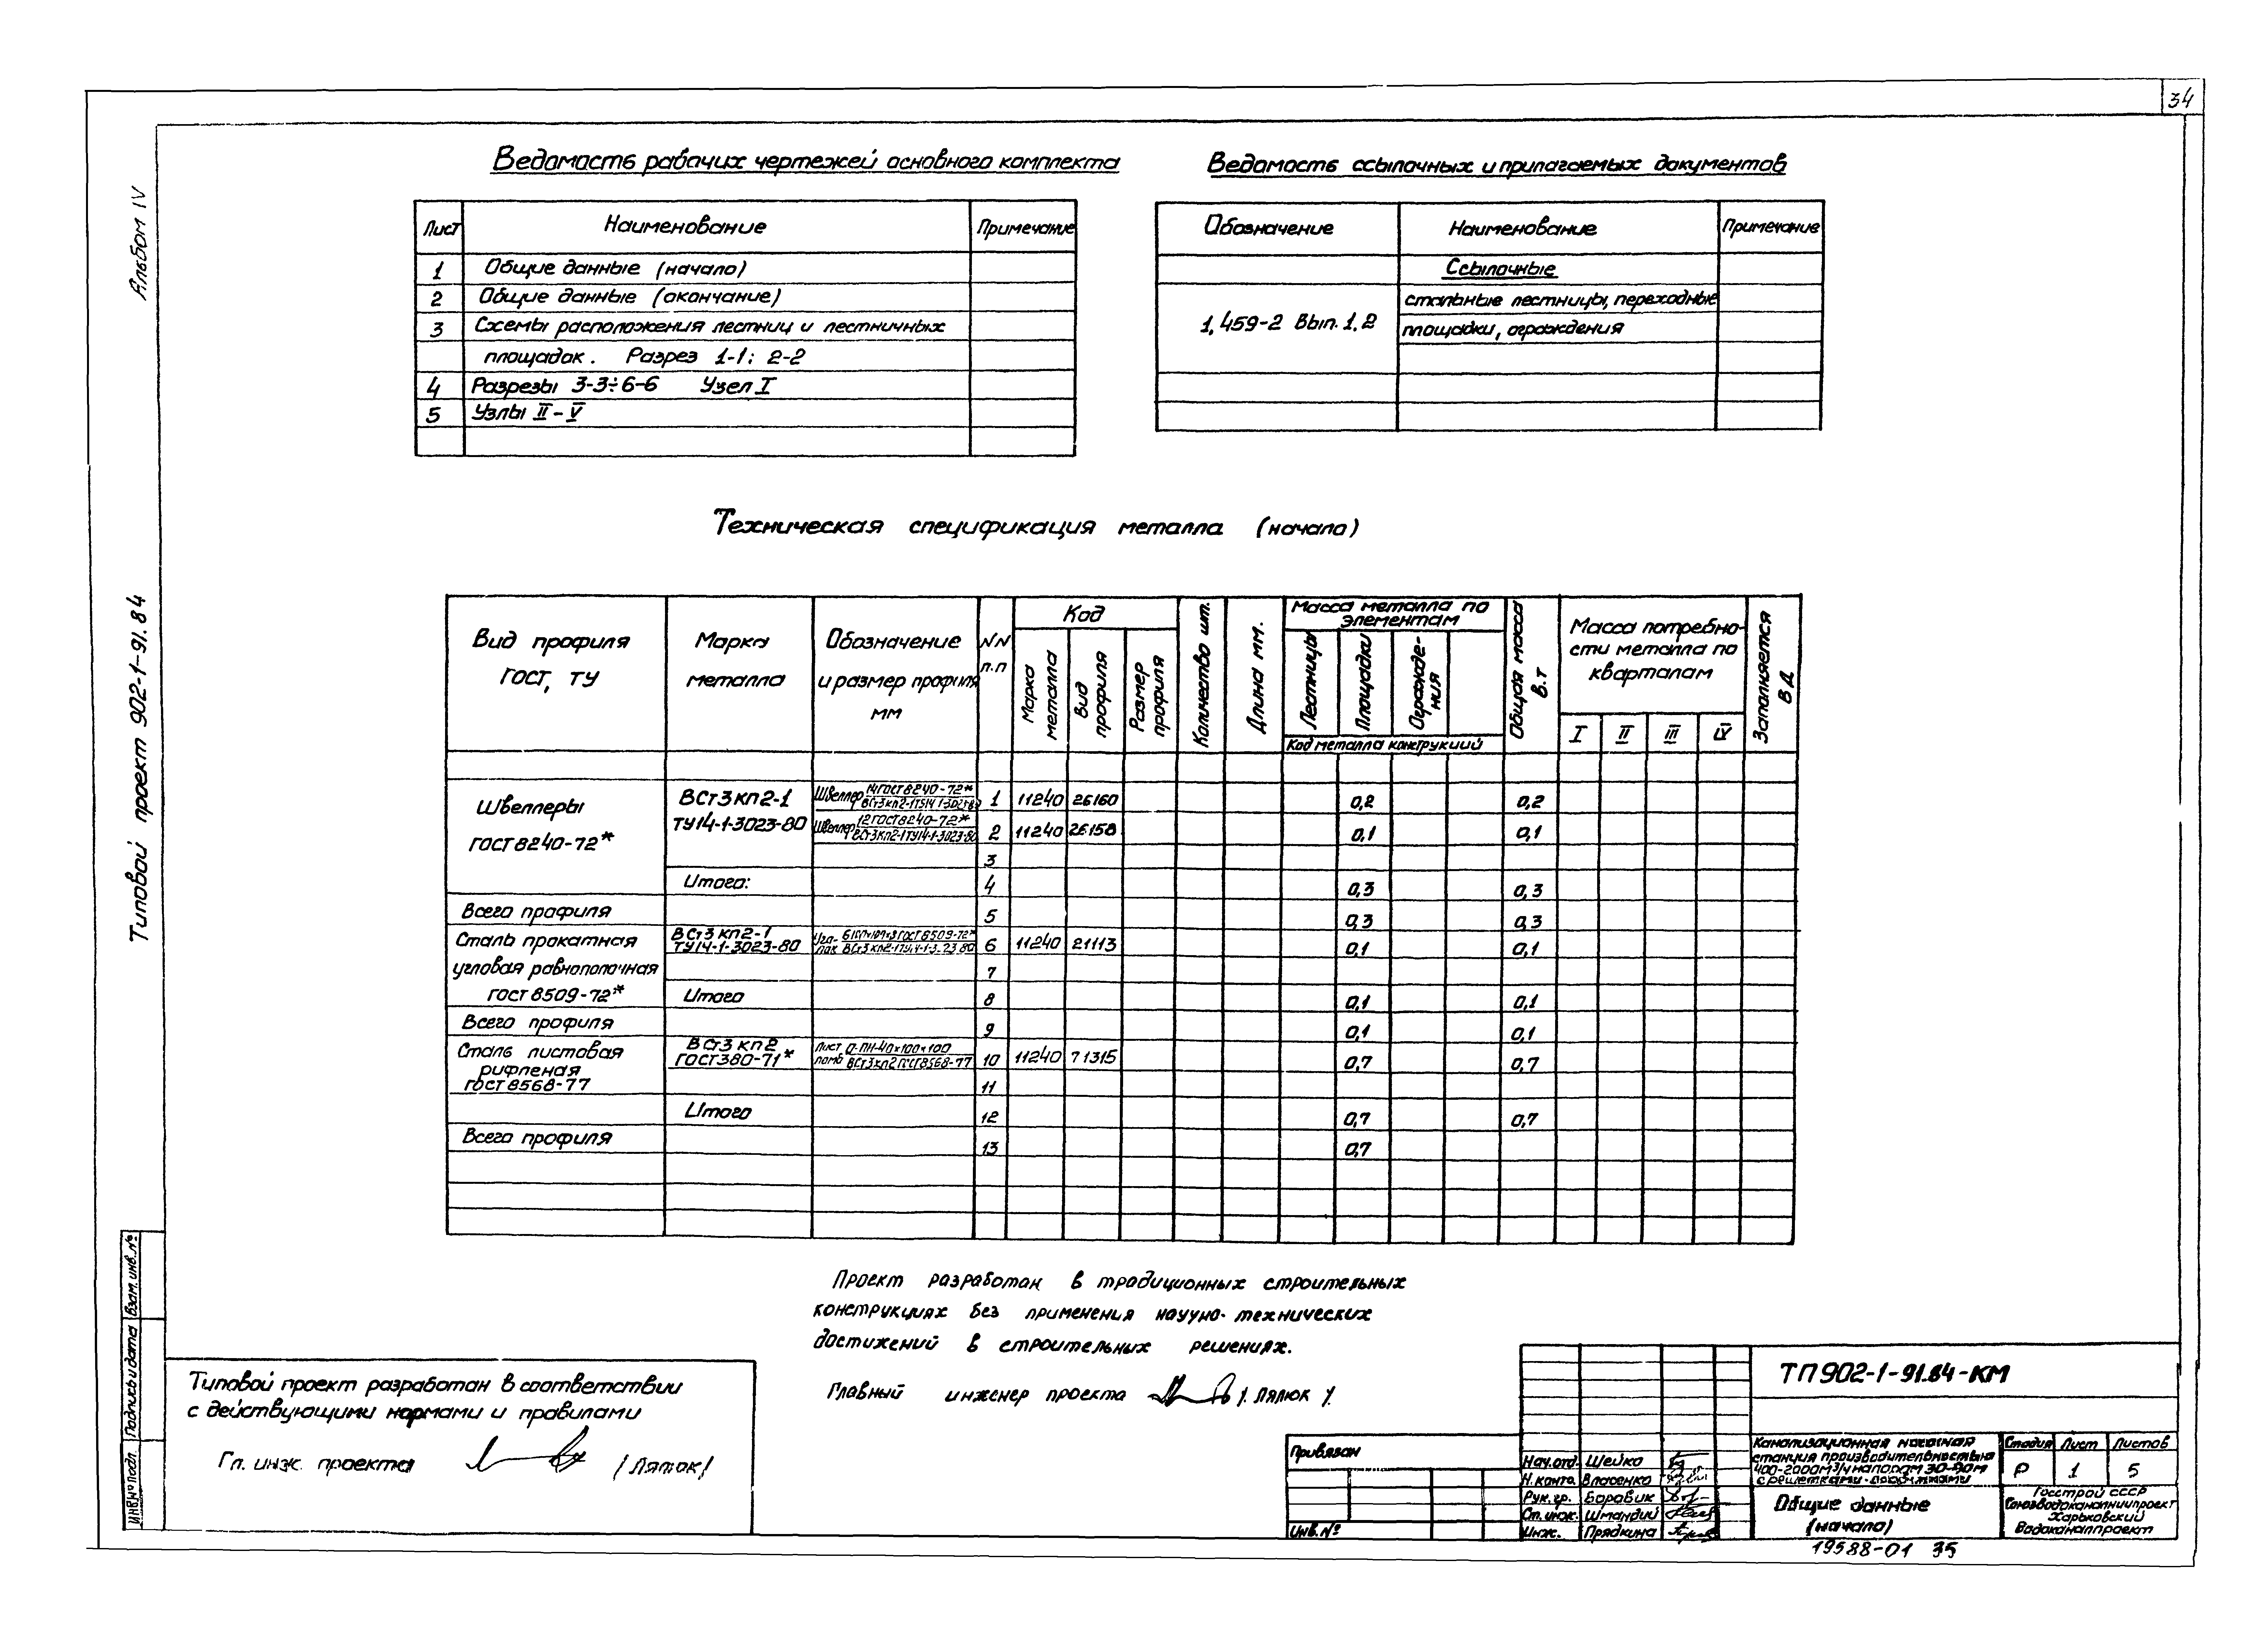 34
Альбом IV
Типовой проект 902-1-91.84
Ведомость рабочих чертежей основного комплекта
Лист Наименование Примечание
1 Общие данные (начало)
2 Общие данные (окончание)
3 Схемы расположения лестниц и лестничных
площадок. Разрез 1-1; 2-2
4 Разрезы 3-3÷6-6 Узел I
5 Узлы II-V
Ведомость ссылочных и прилагаемых документов
Обозначение Наименование Примечание
Ссылочные
1.459-2 Вып. 1,2
стальные лестницы, переходные
площадки, ограждения
Техническая спецификация металла (начало)
Вид профиля
ГОСТ, ТУ
Марка
металла
Обозначение
и размер профиля
мм
NN
п.п
Код
Марка
металла
Вид
профиля
Размер
профиля
Количество шт.
Длина мм.
Масса металла по
элементам
Лестницы
Площадки
Огражде-
ния
Код металла конструкций
Общая масса
в.т
Масса потребно-
сти металла по
кварталам
I II III IV
Заполняется
в Д
Швеллеры
ГОСТ 8240-72*
ВСт3кп2-1
ТУ14-1-3023-80
Швеллер 14 ГОСТ 8240-72* 1 11240 26160 0,2 0,2
Швеллер 12 ГОСТ 8240-72*
ВСт3кп2-1 ТУ14-1-3023-80
2 11240 26158 0,1 0,1
3
Итого: 4 0,3 0,3
Всего профиля 5 0,3 0,3
Сталь прокатная
угловая равнополочная
ГОСТ 8509-72*
ВСт3кп2-1
ТУ14-1-3023-80
Уго-
лок
ГОСТ 8509-72*
6 11240 21113 0,1 0,1
7
Итого 8 0,1 0,1
Всего профиля 9 0,1 0,1
Сталь листовая
рифленая
ГОСТ 8568-77
ВСт3кп2
ГОСТ 380-71*
Лист
ромб
ВСт3кп2 ГОСТ 8568-77
10 11240 71315 0,7 0,7
11
Итого 12 0,7 0,7
Всего профиля 13 0,7
Проект разработан в традиционных строительных
конструкциях без применения научно-технических
достижений в строительных решениях.
Главный инженер проекта /Лялюк/
Типовой проект разработан в соответствии
с действующими нормами и правилами
Гл. инж. проекта /Лялюк/
Взам. инв. №
Подпись и дата
Инв. № подл.
Привязан
Инв. №
Нач. отд. Шейко
Н. контр. Власенко
Рук. гр. Боровик
Ст. инж. Шмандий
Инж. Прядкина
ТП 902-1-91.84-КМ
Канализационная насосная
станция производительностью
400-2000м³/ч напором 30-90м
с решетками-дробилками
Стадия Лист Листов
Р 1 5
Общие данные
(начало)
Госстрой СССР
Союзводоканалниипроект
Харьковский
Водоканалпроект
19588-01 35